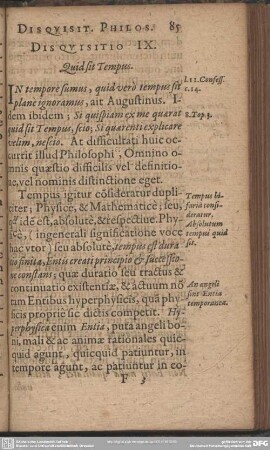 DISQVISIT. PHILOS. 85
DISQVISITIO IX.
Quid sit Tempus.
IN tempore sumus, quid verò tempus sit
plane ignoramus, ait Augustinus. I-
dem ibidem; Si quispiam ex me quærat
quid sit Tempus, scio; Si quærenti explicare
velim, nescio. At difficultati huic oc-
currit illud Philosophi, Omnino o-
mnis quæstio difficilis vel definitio-
ne, vel nominis distinctione eget.
Tempus igitur cōsideratur dupli-
citer; Physicè, & Mathematicè; seu,
qd' idē est, absolutè, & respectiuè. Phy-
sicè, (ingenerali significatione voce
hac vtor) seu absolutè, tempus est dura-
tio finita, Entis creati principio & successio-
ne constans; quæ duratio seu tractus &
continuatio existentiæ, & actuum nō
tum Entibus hyperphysicis, quā phy-
sicis propriè sic dictis competit. Hy-
perphysica enim Entia, puta angeli bo-
ni, mali & ac animæ rationales quic-
quid agunt, quicquid patiuntur, in
tempore agunt, ac patiuntur in eo
F 3
l. 11. Confess.
c. 14.
8. Top. 3.
Tempus bi-
fariā consi-
deratur.
Absolutum
tempus quid
sit.
An angeli
sint Entia
temporanea.